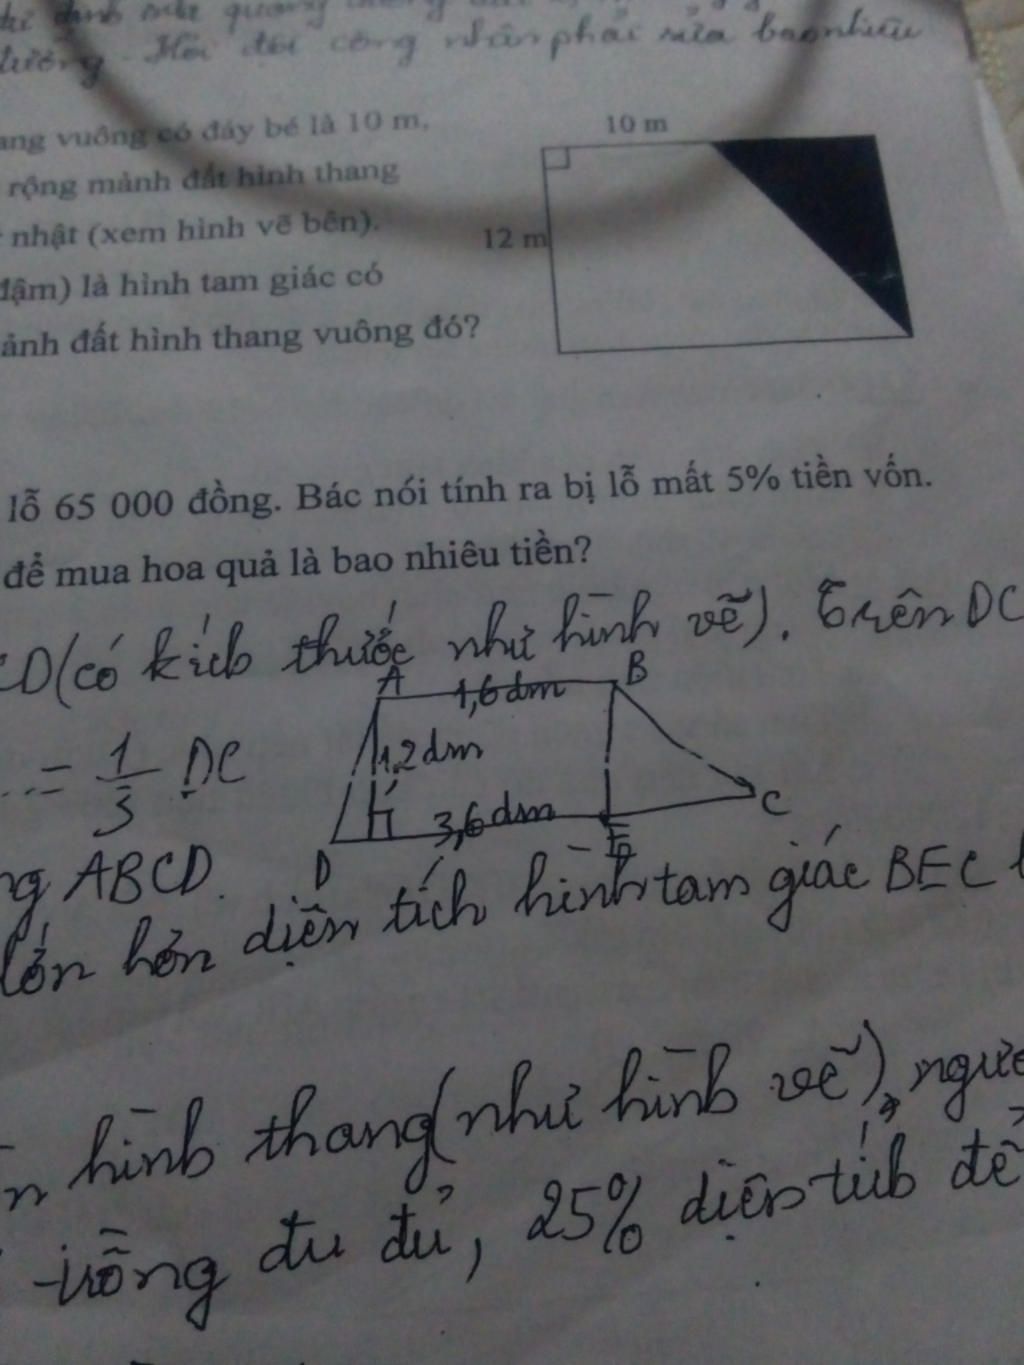 quang
tường. Hỏi đội công nhân phải sửa bao nhiêu
ang vuông có đáy bé là 10 m,
10 m
rộng mảnh đất hình thang
nhật (xem hình vẽ bên).
12 m
đậm) là hình tam giác có
ảnh đất hình thang vuông đó?
lỗ 65 000 đồng. Bác nói tính ra bị lỗ mất 5% tiền vốn.
để mua hoa quả là bao nhiêu tiền?
CD (có kích thước như hình vẽ). Trên DC
A 1,6 dm B
1,2 dm
= 1/3 DC
H 3,6 dm E C
D
ng ABCD.
lớn hơn diện tích hình tam giác BEC
n hình thang (như hình vẽ), ngườ
trồng đu đủ, 25% diện tích để